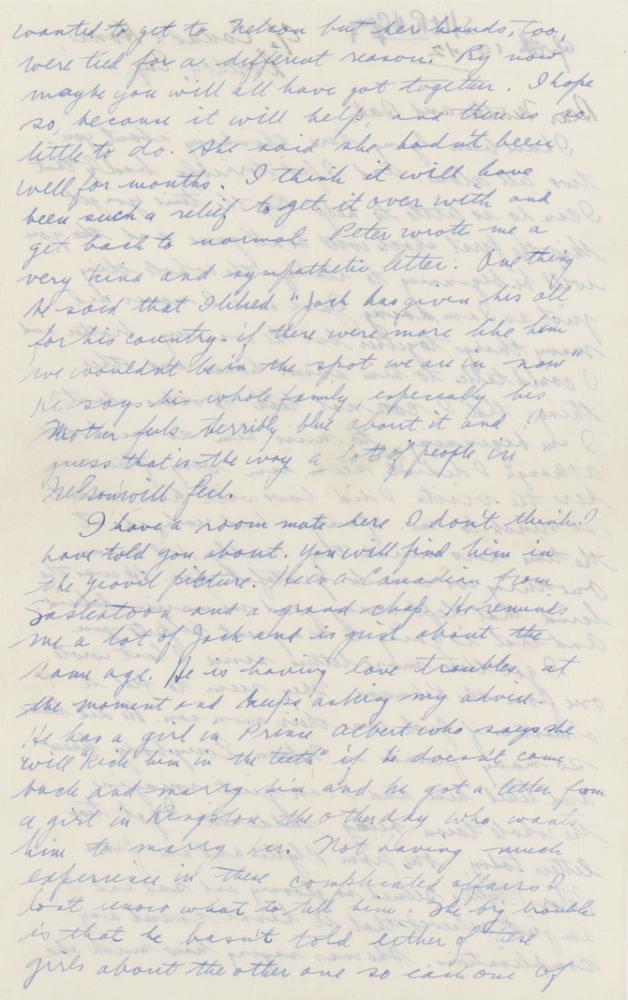 wanted to get to Nelson but her hands, too,
were tied for a different reason. By now
maybe you will all have got together. I hope
so, because it will help, and there is so
little to do. She said she hadn't been
well for months. I think it will have
been such a relief to get it over with and
get back to normal. Peter wrote me a
very kind and sympathetic letter. One thing
he said that I liked "Jack has given his all
for his country - if there were more like him
we wouldn't be in the spot we are in now"
He says his whole family especially his
Mother feels terribly blue about it and I
guess that is the way a lot of people in
Nelson will feel.
I have a room mate here I don't think I
have told you about. You will find him in
the Yeovil picture. He is a Canadian from
Saskatoon and a grand chap. He reminds
me a lot of Jack and is just about the
same age. He is having love troubles at
the moment and keeps asking my advice.
He has a girl in Prince Albert who says she
will "kick him in the teeth" if he doesn't come
back and marry him and he got a letter from
a girl in Kingston the other day who wants
him to marry her. Not having much
experience in these complicated affairs I
don't know what to tell him. The big trouble
is that he hasn't told either of these
girls about the other one so each one of